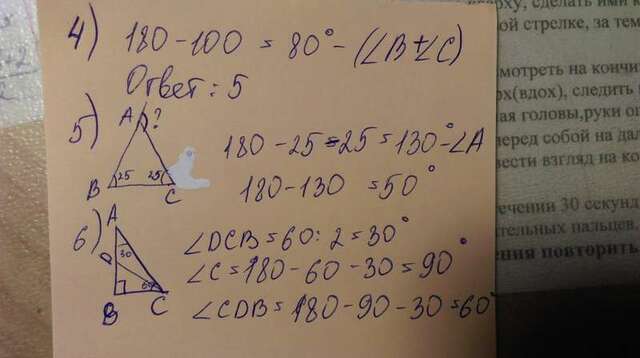 4) 180-100=80°-(∠B+∠C)
Ответ: 5
5)
A ?
B 25 25 C
180-25-25=130°-∠A
180-130=50°
6)
A
30
D
60
B C
∠DCB=60:2=30°
∠C=180-60-30=90°
∠CDB=180-90-30=60°
сделать ими
ой стрелке, за тем
мотреть на кончи
рх(вдох), следить
ая головы,руки оп
перед собой на дал
вести взгляд на ко
течении 30 секунд
тельных пальцев.
ния повторить